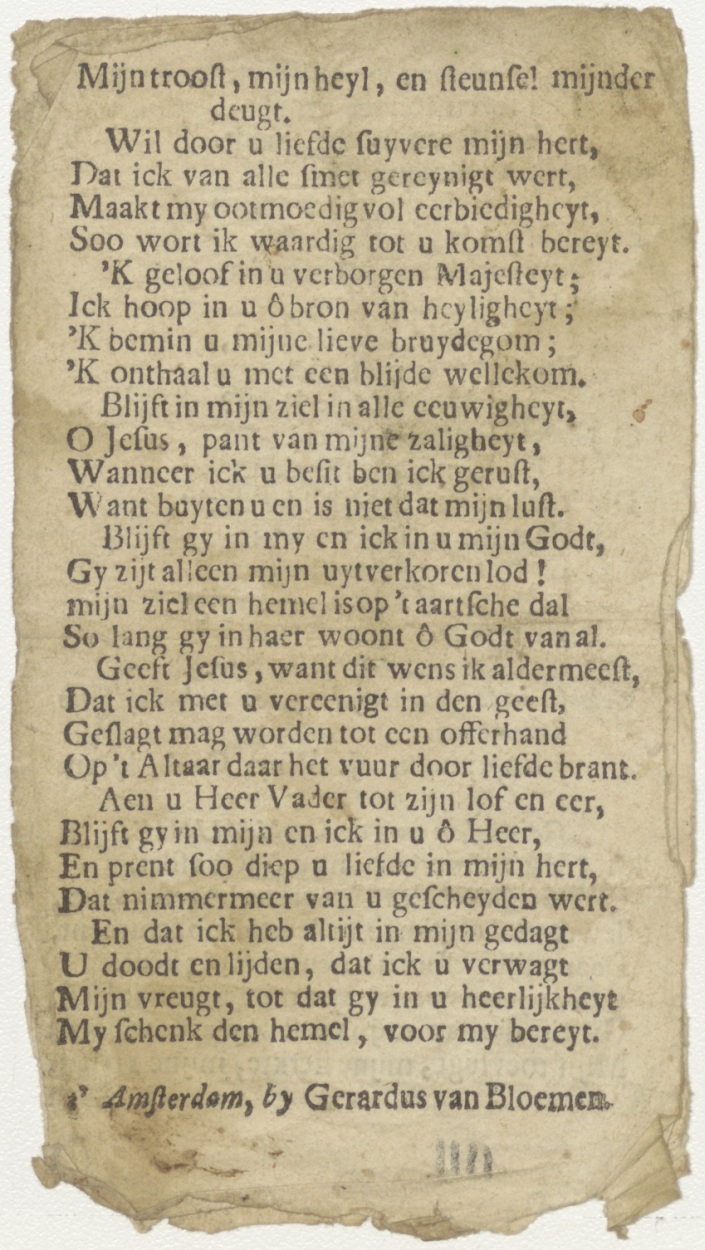 Mijn troost, mijn heyl, en steunsel mijnder
deugt.
Wil door u liefde suyvere mijn hert,
Dat ick van alle smet gereynigt wert,
Maakt my ootmoedig vol eerbiedigheyt,
Soo wort ik waardig tot u komst bereyt.
'K geloof in u verborgen Majesteyt;
Ick hoop in u ô bron van heyligheyt;
'K bemin u mijne lieve bruydegom;
'K onthaal u met een blijde wellekom.
Blijft in mijn ziel in alle eeuwigheyt,
O Jesus, pant van mijne zaligheyt,
Wanneer ick u besit ben ick gerust,
Want buyten u en is niet dat mijn lust.
Blijft gy in my en ick in u mijn Godt,
Gy zijt alleen mijn uytverkoren lod!
mijn ziel een hemel is op 't aartsche dal
So lang gy in haer woont ô Godt van al.
Geeft Jesus, want dit wens ik aldermeest,
Dat ick met u vereenigt in den geest,
Geslagt mag worden tot een offerhand
Op 't Altaar daar het vuur door liefde brant.
Aen u Heer Vader tot zijn lof en eer,
Blijft gy in mijn en ick in u ô Heer,
En prent soo diep u liefde in mijn hert,
Dat nimmermeer van u gescheyden wert.
En dat ick heb altijt in mijn gedagt
U doodt en lijden, dat ick u verwagt
Mijn vreugt, tot dat gy in u heerlijkheyt
My schenk den hemel, voor my bereyt.
t' Amsterdam, by Gerardus van Bloemen.